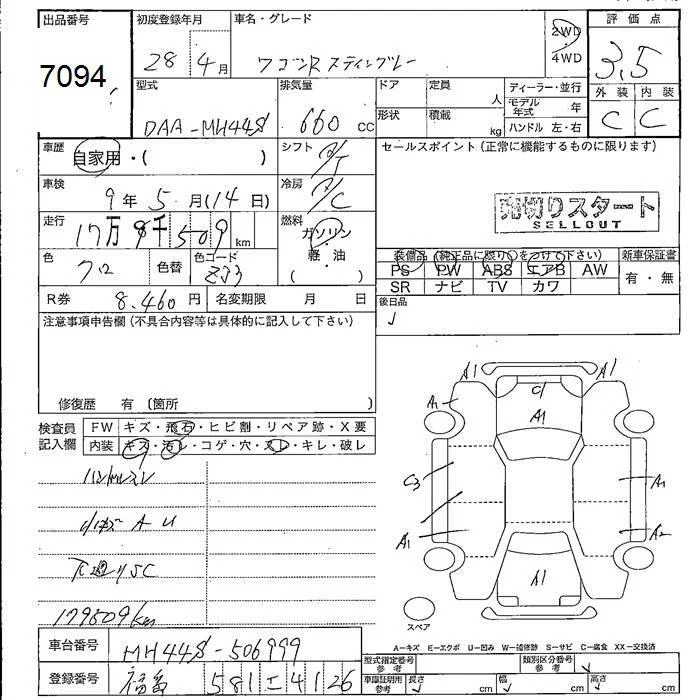 出品番号
7094
初度登録年月
28年4月
車名・グレード
ワゴンR スティングレー
2WD
・
4WD
評価点
3.5
外装 内装
C C
型式
DAA-MH44S
排気量
660 cc
ドア 定員 人
形状 積載 kg
ディーラー・並行
モデル年式 年
ハンドル 左・右
車歴
自家用・( )
シフト
A/T
セールスポイント(正常に機能するものに限ります)
売切りスタート
SELLOUT
車検
9年 5月(14日)
冷房
A/C
走行
17万9千509km
燃料
ガソリン
・
軽・油
( )
色
クロ
色替
色コード
ZJ3
装備品(純正品に限り○をつけて下さい)
PS PW ABS エアB AW
SR ナビ TV カワ
新車保証書
有・無
R券 8.460円
名変期限 月 日
後日品
注意事項申告欄(不具合内容等は具体的に記入して下さい)
修復歴 有 〔箇所 〕
検査員記入欄
FW キズ・飛石・ヒビ割・リペア跡・X要
内装 キズ・汚レ・コゲ・穴・スレ・キレ・破レ
ハンドルスレ
下廻りSC
179509km
A1 A1
C1
A1 A1
C3 A1
A1 A2
A1
スペア
A-キズ E-エクボ U-凹み W-補修跡 S-サビ C-腐食 XX-交換済
車台番号 MH44S-506999
登録番号 福島 581 ニ 4126
型式指定番号 参考
類別区分番号 参考
車庫証明用 参考
長さ cm 幅 cm 高さ cm